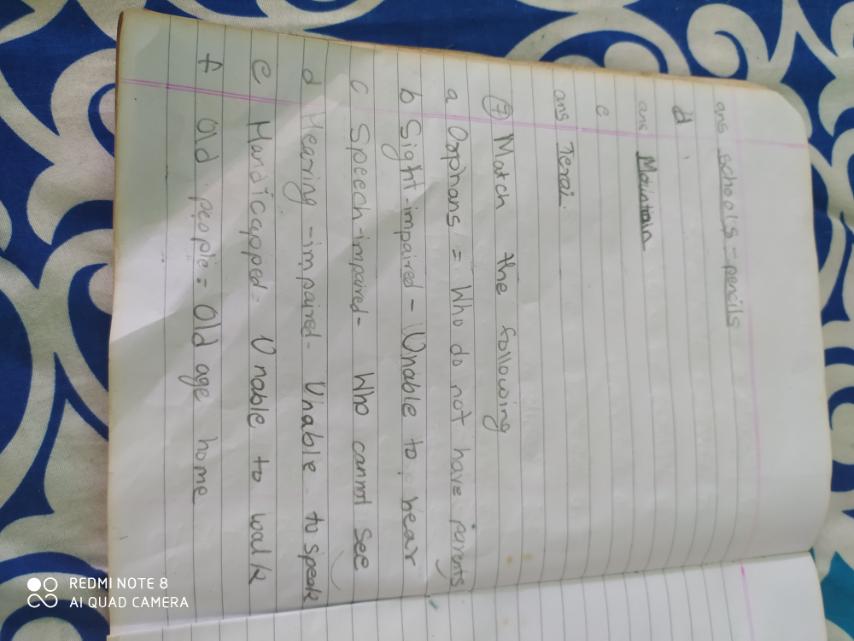 ans schools - pencils
d.
ans Mountain
e
ans Terai.
7 Match the following
a Orphans = Who do not have parents
b Sight-impaired - Unable to hear
c Speech-impaired - Who cannot see
d Hearing-impaired - Unable to speak
e Handicapped - Unable to walk
f Old people = Old age home
REDMI NOTE 8
AI QUAD CAMERA